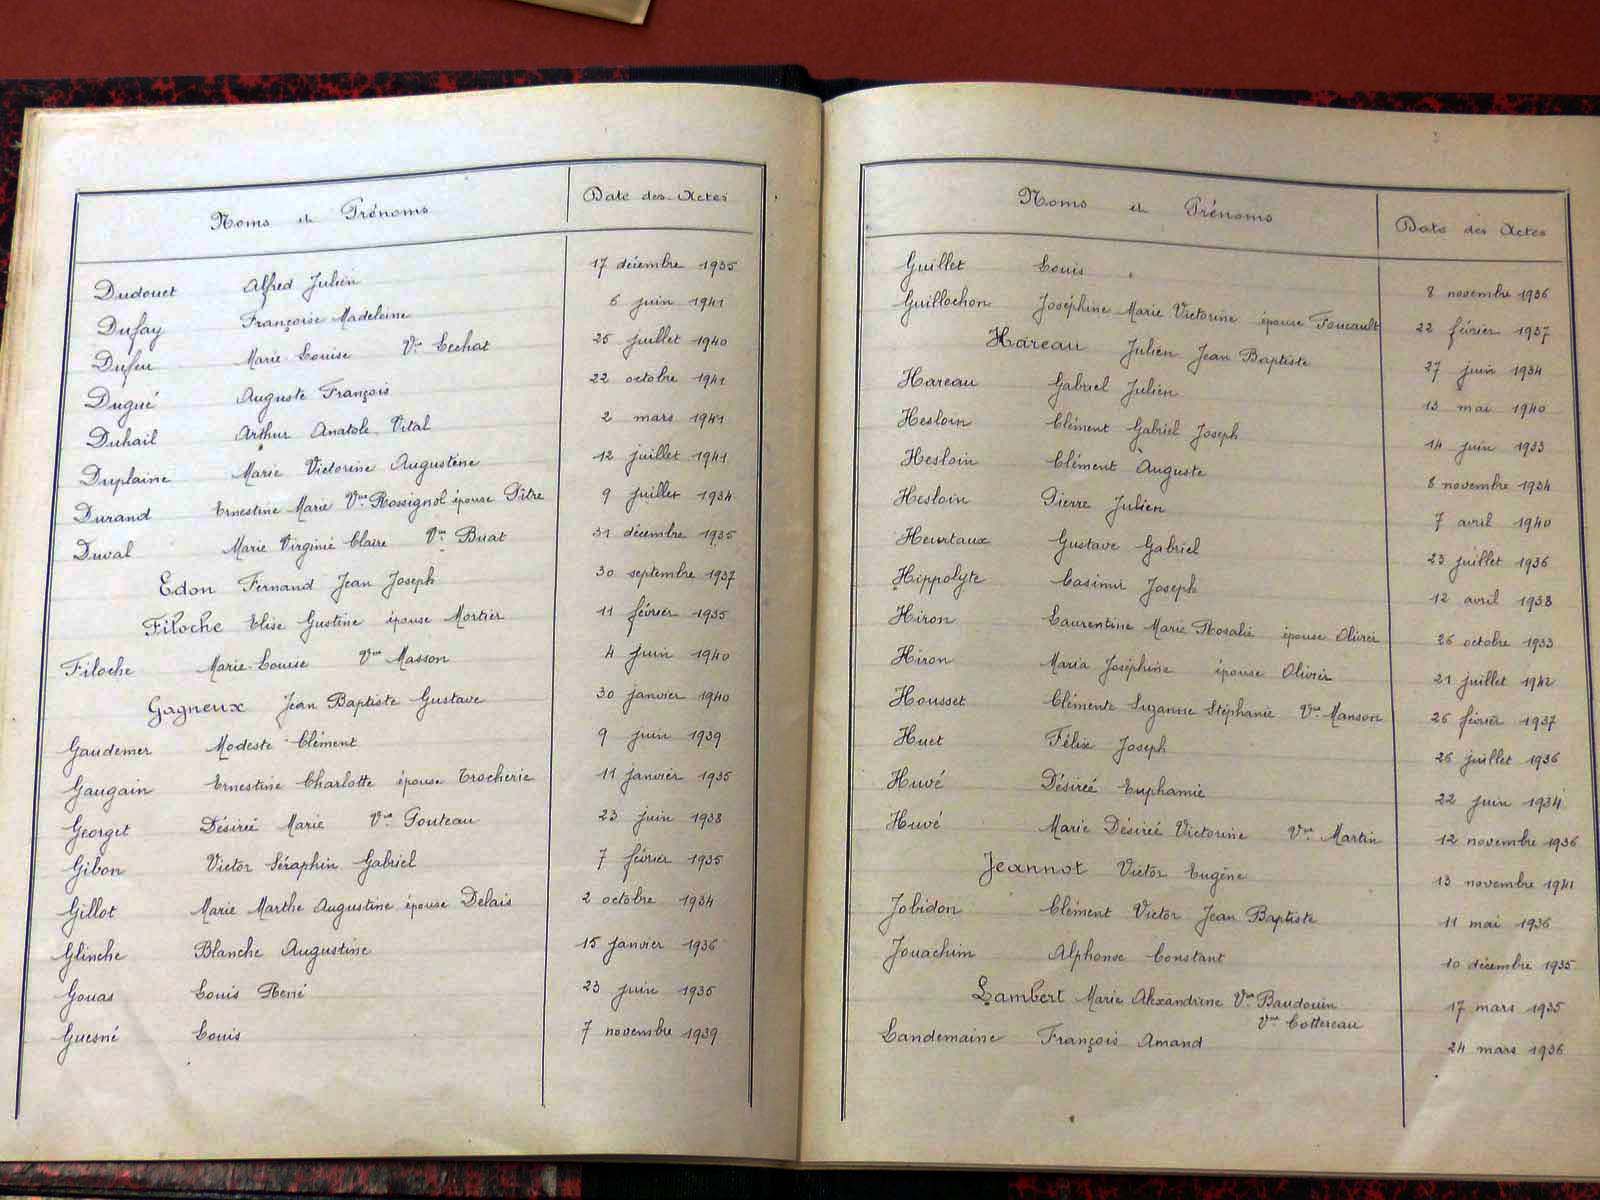 Noms et Prénoms Date des Actes
Dudouet Alfred Julien 17 décembre 1935
Dufay Françoise Madeleine 6 juin 1941
Dufeu Marie Louise Vve Lechat 25 juillet 1940
Dugué Auguste François 22 octobre 1941
Duhail Arthur Anatole Vital 2 mars 1941
Duplaine Marie Victorine Augustine 12 juillet 1941
Durand Ernestine Marie Vve Rossignol épouse Pitre 9 juillet 1934
Duval Marie Virginie Claire Vve Buat 31 décembre 1935
Edon Fernand Jean Joseph 30 septembre 1937
Filoche Elise Gustine épouse Mortier 11 février 1935
Filoche Marie-Louise Vve Masson 4 juin 1940
Gagneux Jean Baptiste Gustave 30 janvier 1940
Gaudemer Modeste Clément 9 juin 1939
Gaugain Ernestine Charlotte épouse Trocherie 11 janvier 1935
Georget Désirée Marie Vve Pouteau 23 juin 1938
Gibon Victor Séraphin Gabriel 7 février 1935
Gillot Marie Marthe Augustine épouse Delais 2 octobre 1934
Glinche Blanche Augustine 15 janvier 1936
Gouas Louis René 23 juin 1935
Guesné Louis 7 novembre 1939
Noms et Prénoms Date des Actes
Guillet Louis 8 novembre 1936
Guillochon Joséphine Marie Victorine épouse Foucault 22 février 1937
Hareau Julien Jean Baptiste 27 juin 1934
Hareau Gabriel Julien 13 mai 1940
Hesloin Clément Gabriel Joseph 14 juin 1933
Hesloin Clément Auguste 8 novembre 1934
Hesloin Pierre Julien 7 avril 1940
Heurtaux Gustave Gabriel 23 juillet 1936
Hippolyte Casimir Joseph 12 avril 1938
Hiron Laurentine Marie Rosalie épouse Olivier 26 octobre 1933
Hiron Maria Joséphine épouse Olivier 21 juillet 1942
Housset Clémente Suzanne Stéphanie Vve Manson 26 février 1937
Huet Félix Joseph 26 juillet 1936
Huvé Désirée Euphamie 22 juin 1934
Huvé Marie Désirée Victorine Vve Martin 12 novembre 1936
Jeannot Victor Eugène 13 novembre 1941
Jobidon Clément Victor Jean Baptiste 11 mai 1936
Jouachim Alphonse Constant 10 décembre 1935
Lambert Marie Alexandrine Vve Baudouin 17 mars 1935
Vve Cottereau
Landemaine François Amand 24 mars 1936